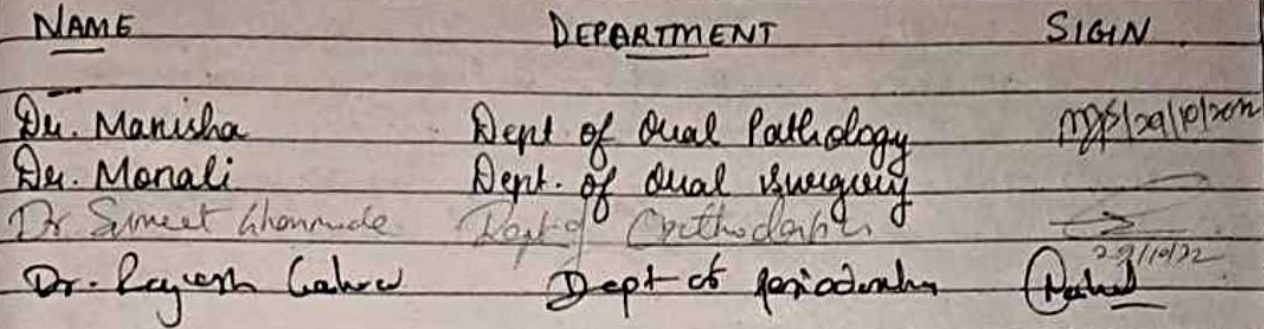 NAME DEPARTMENT SIGIN
Dr. Manisha Dept of Oral Pathology 29/10/2022
Dr. Monali Dept. of Oral Surgery
Dr Sumeet Dept of Orthodontics
29/10/22
Dr. Rajesh Dept of Periodontry